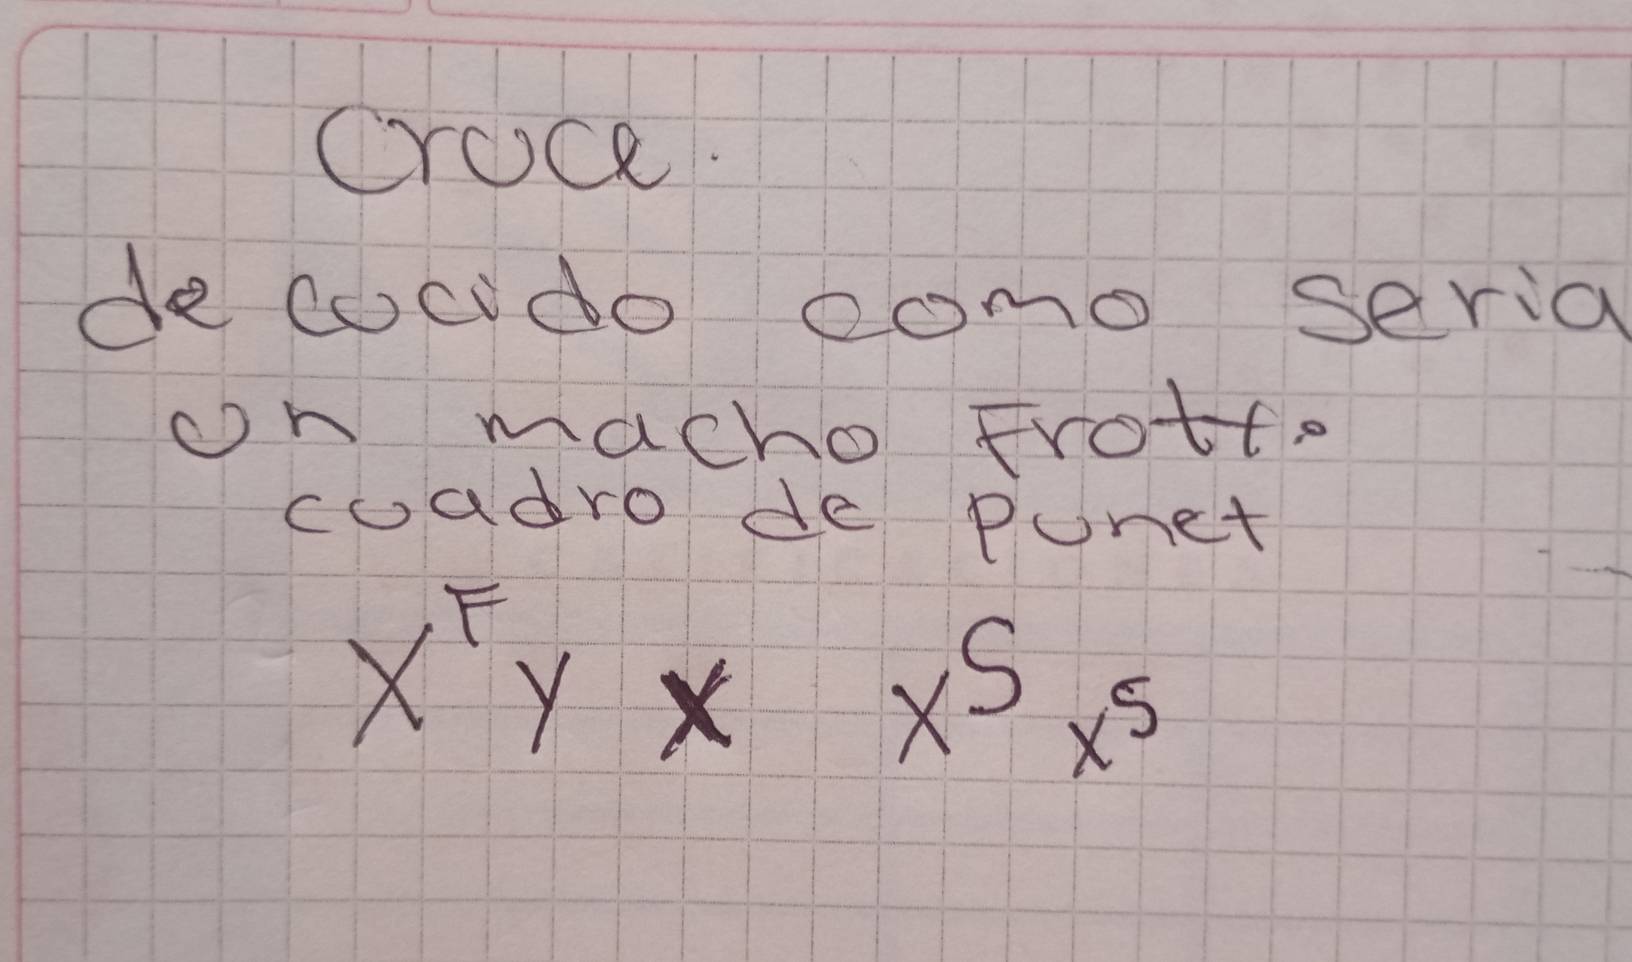 Cruce.
de cocido como seria
un macho Frott.
cuadro de Punet
X^F y x x^S x^S